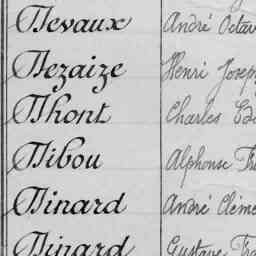 Devaux André Octav
Dezaize Henri Josep
Dhont Charles
Dibou Alphonse
Dinard André Cléme
Dinard Gustave